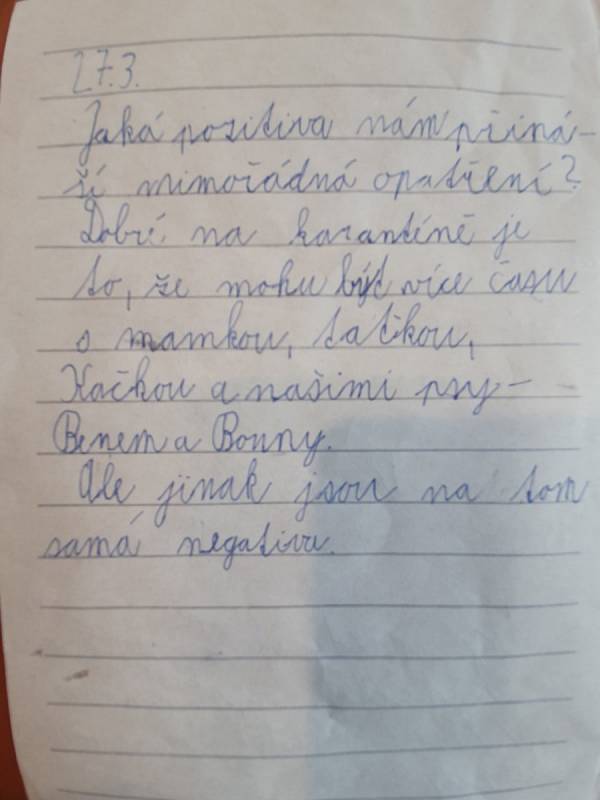 27.3.
Jaká pozitiva nám přiná-
ší mimořádná opatření?
Dobré na karanténě je
to, že mohu být více času
s mamkou, taťkou,
Kačkou a našimi psy -
Benem a Bonny.
Ale jinak jsou na tom
samá negativa.